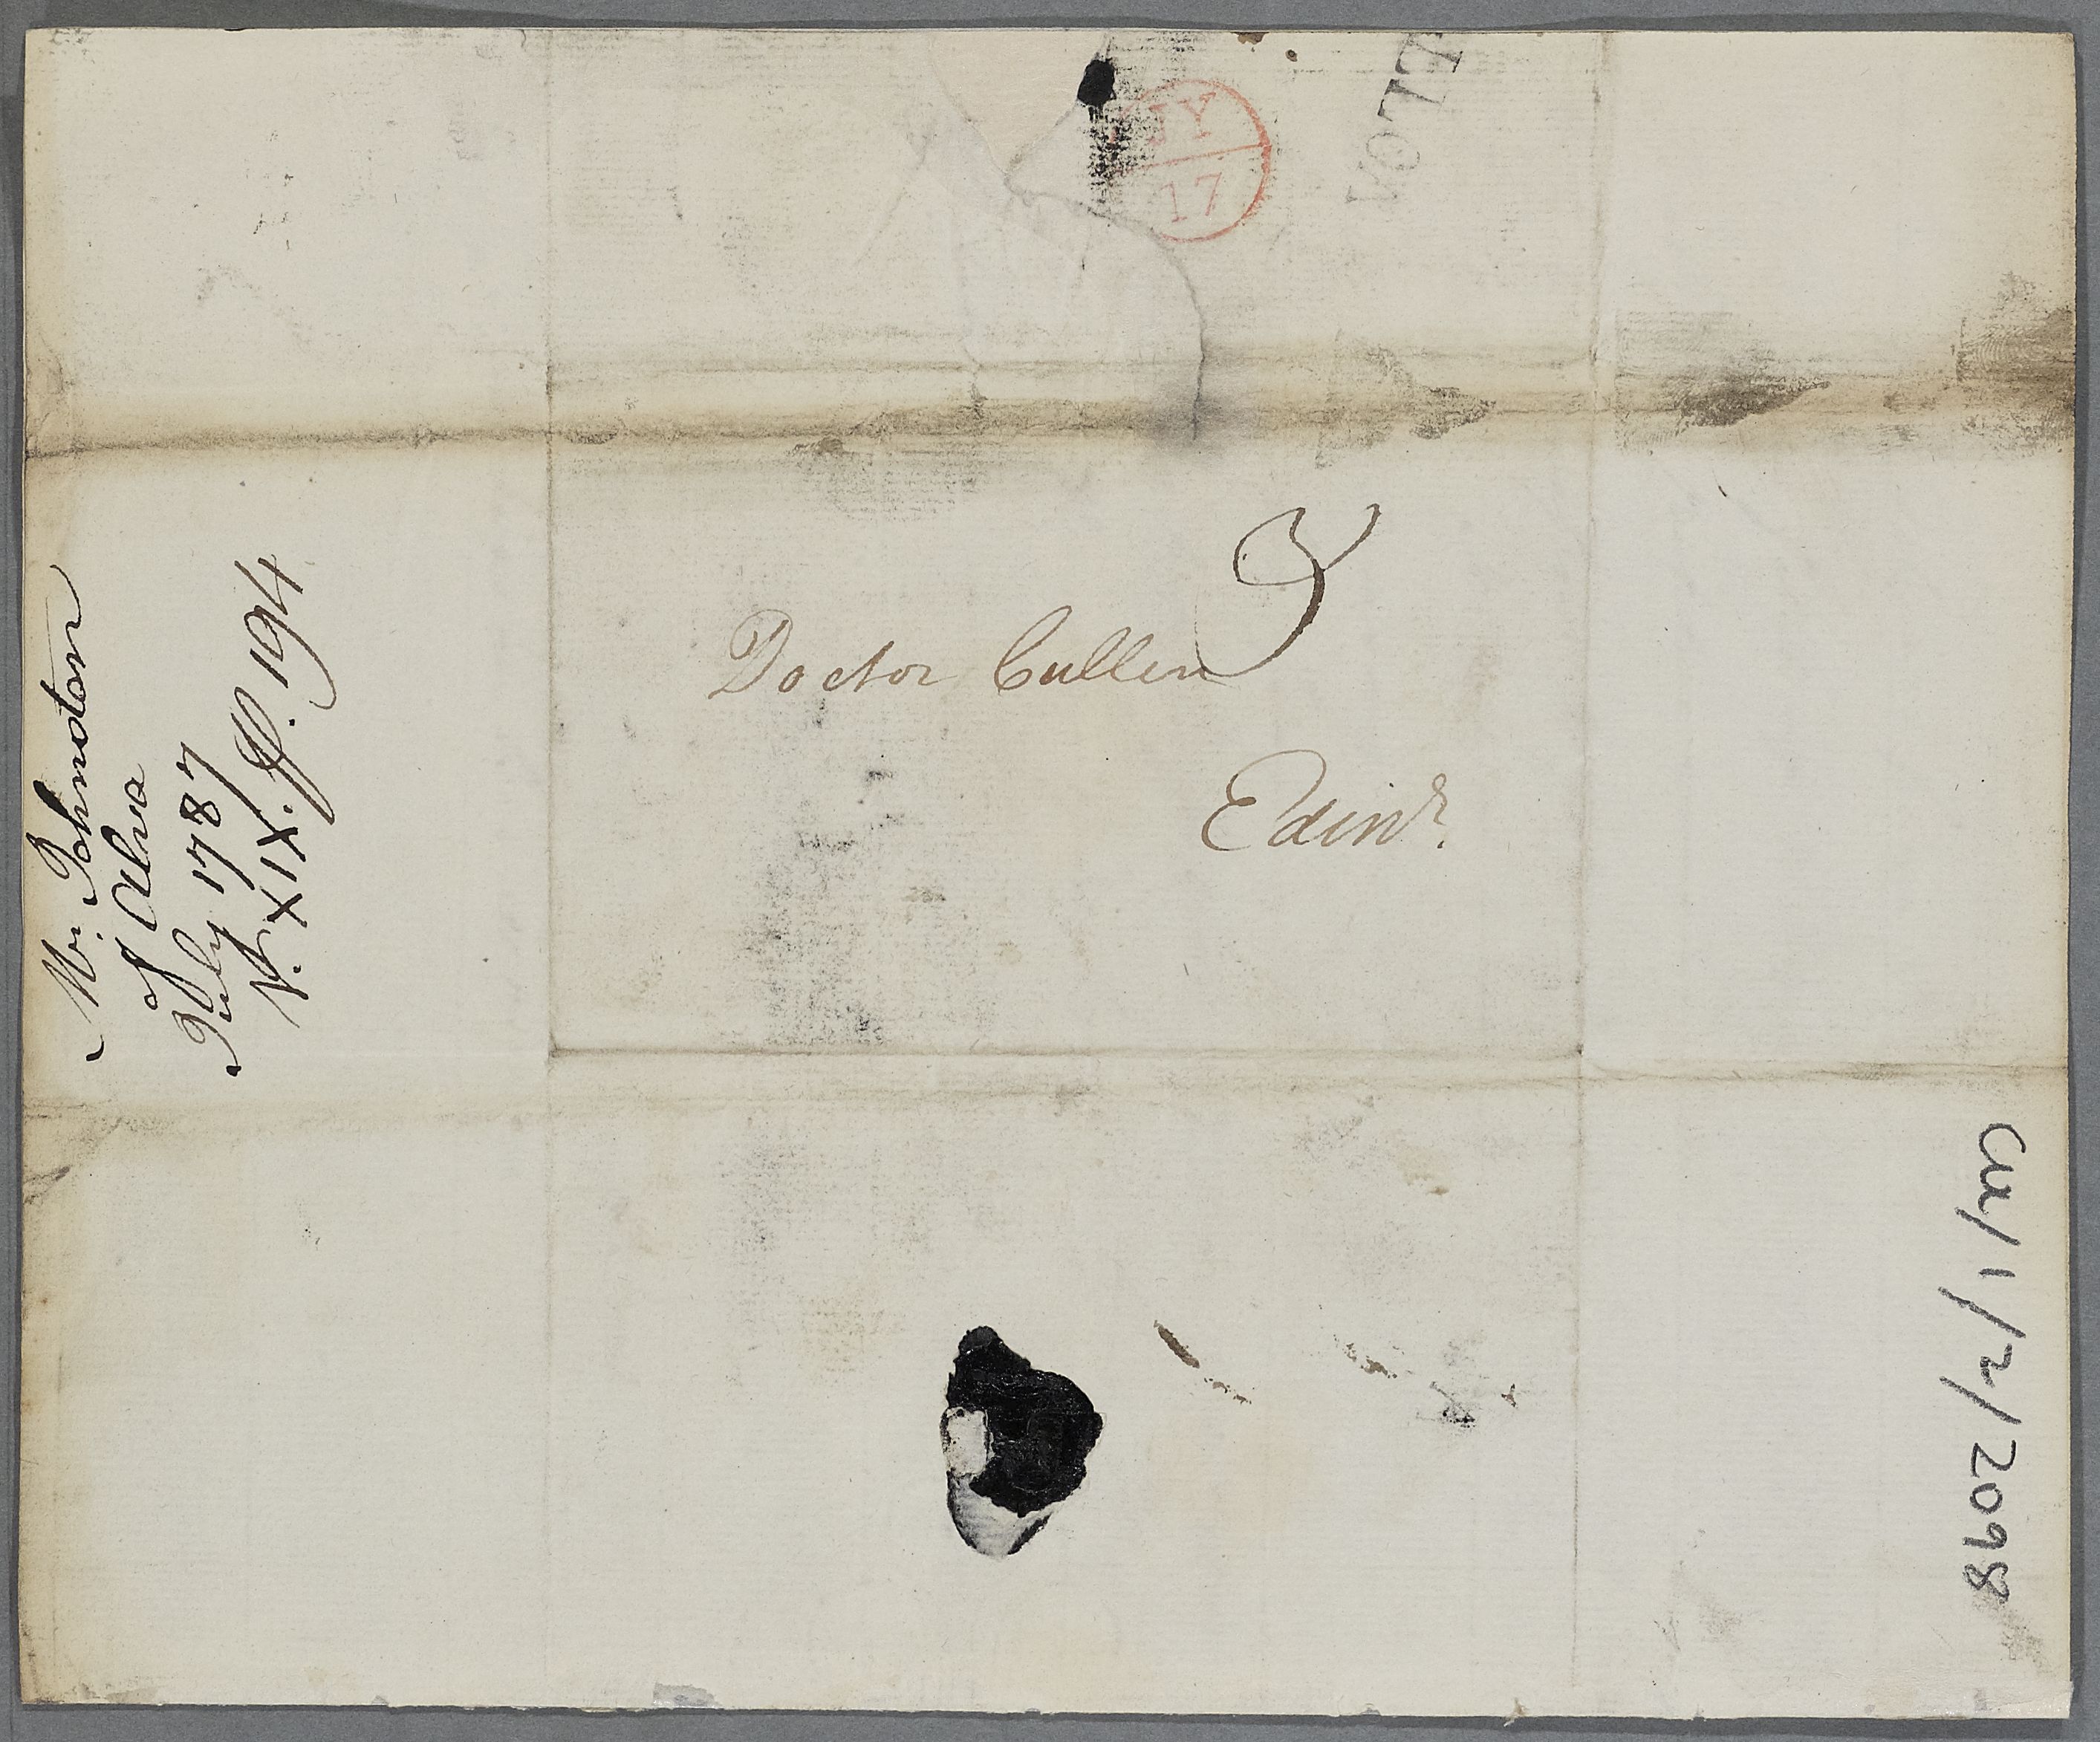 Doctor Cullen
Edinr.
3
Mr. Johnston
of Alva
July 1787
N. XIX. ff. 194
17
CUL/1/2/2098